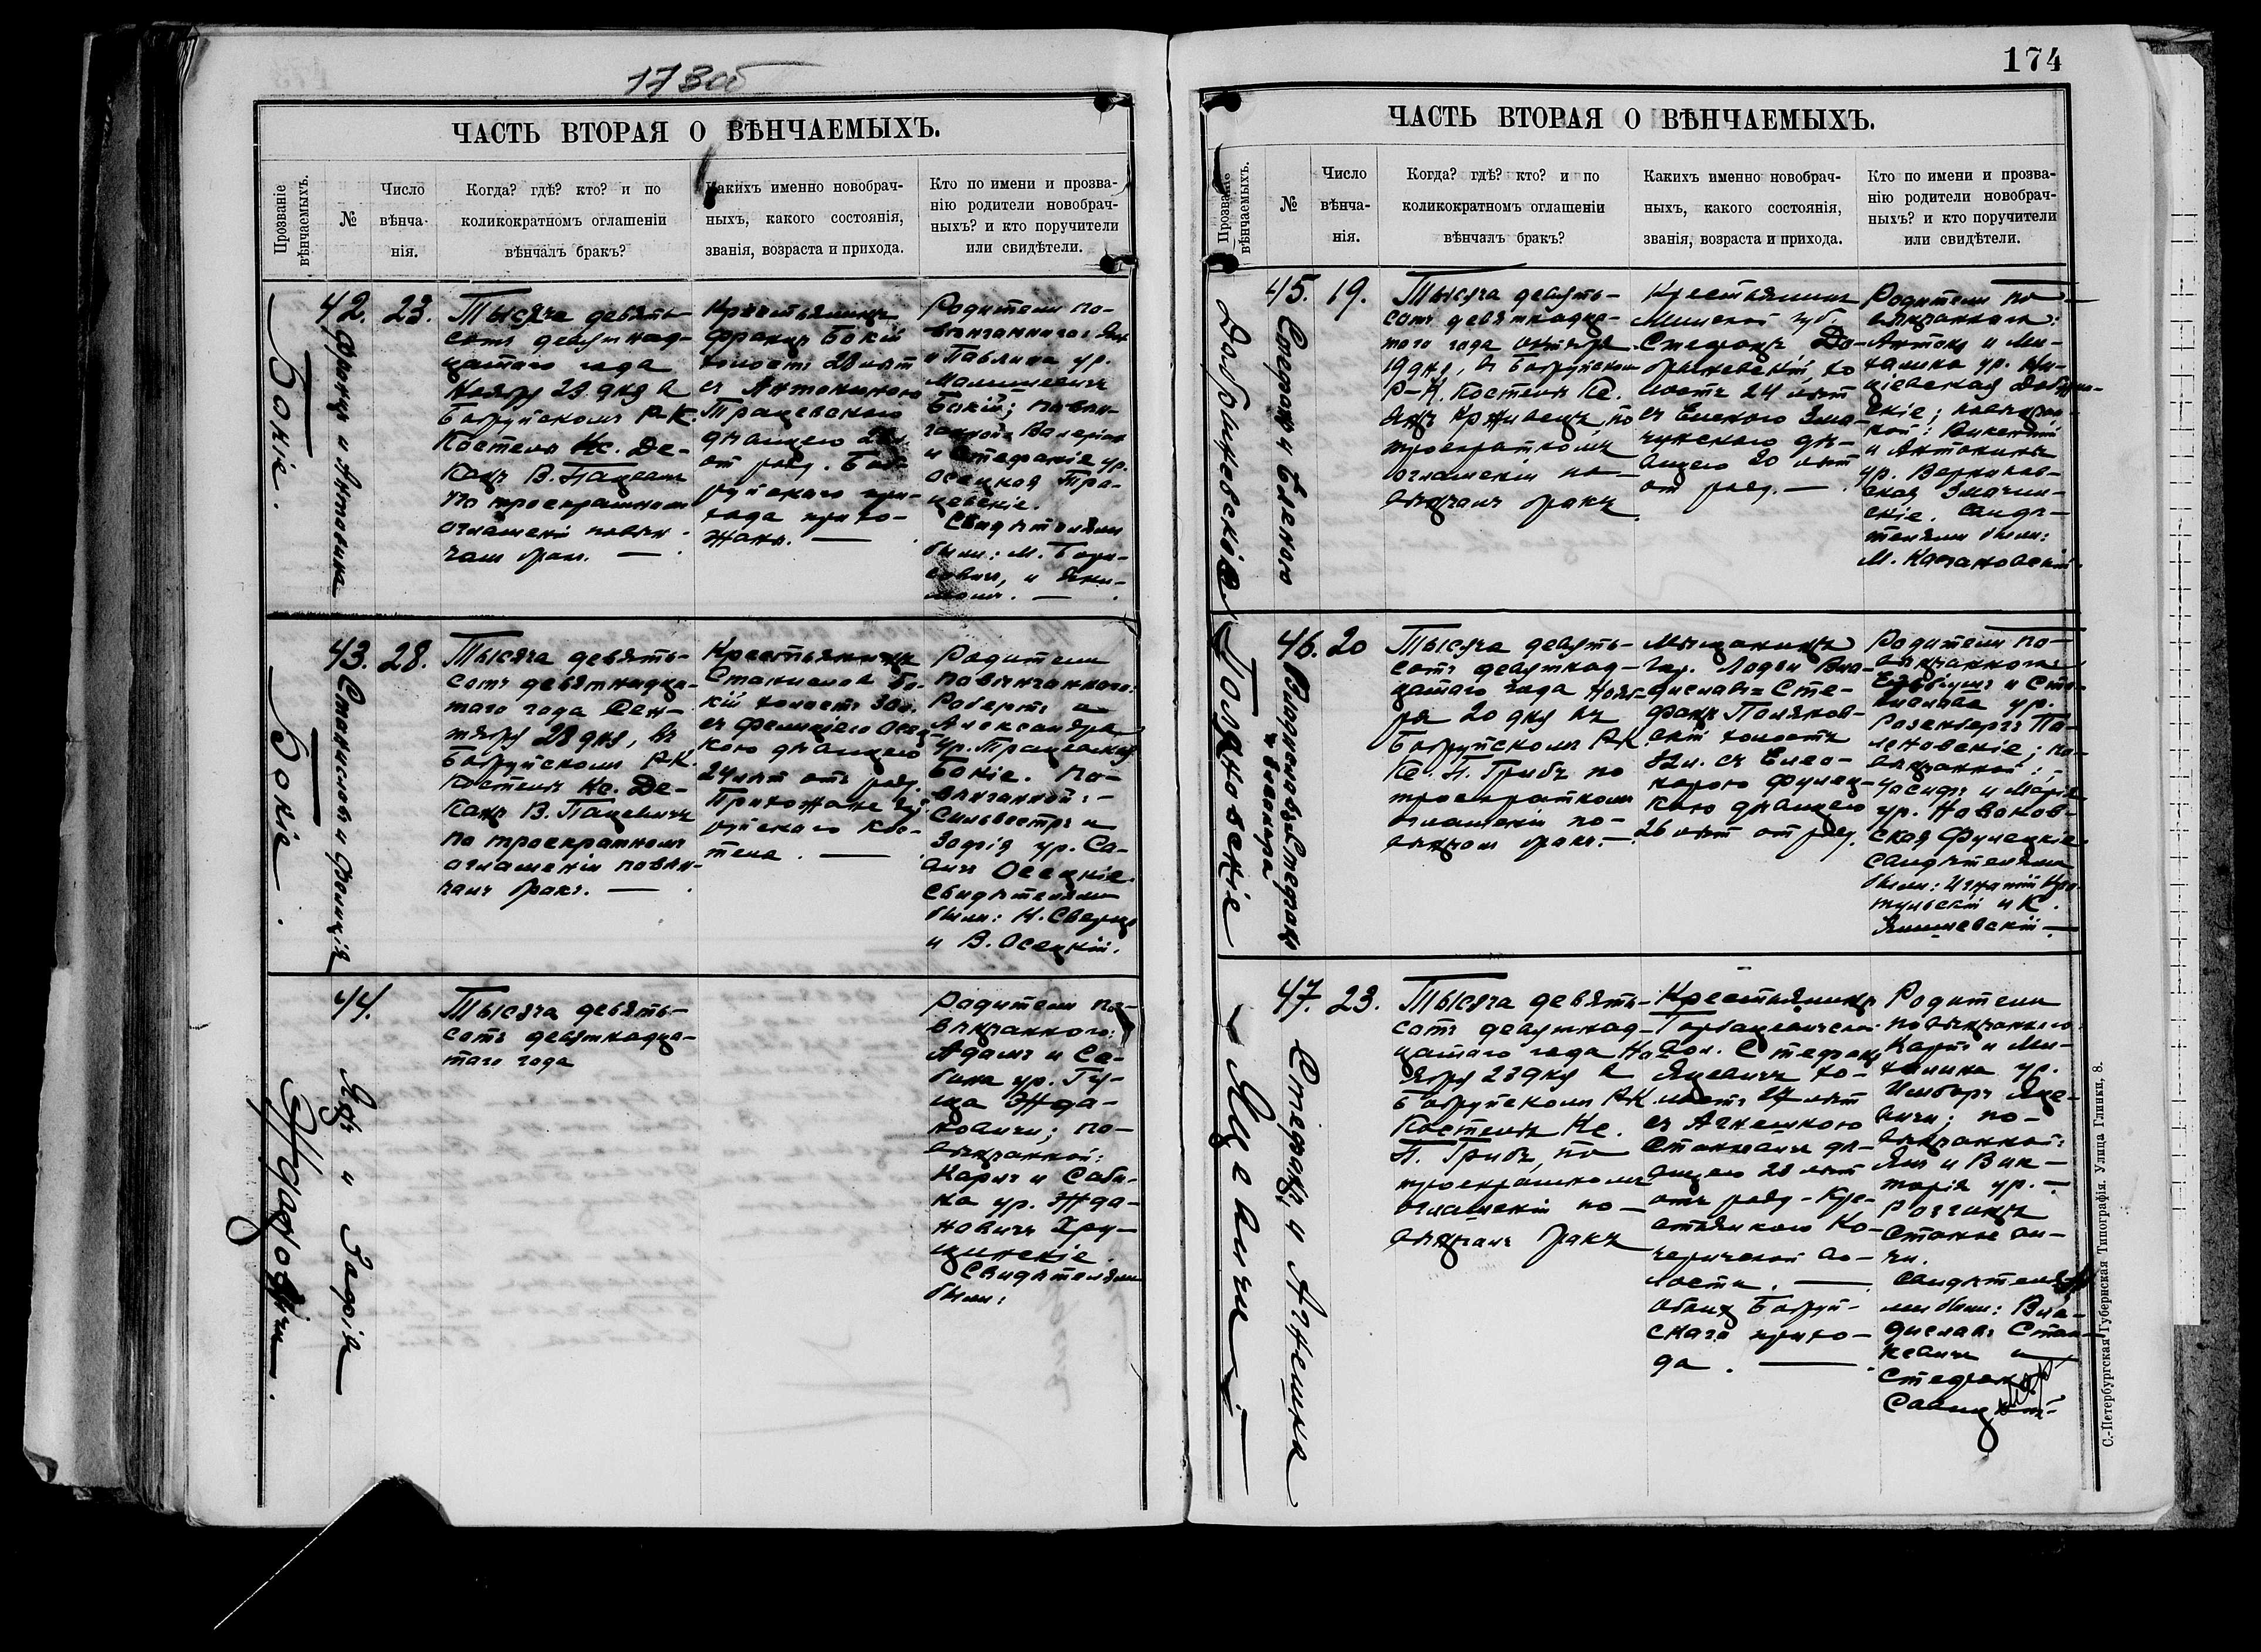 173об
ЧАСТЬ ВТОРАЯ О ВѢНЧАЕМЫХЪ.
Прозваніе вѣнчаемыхъ.
№
Число вѣнча-
нія.
Когда? гдѣ? кто? и по
коликократномъ оглашеніи
вѣнчалъ бракъ?
Какихъ именно новобрач-
ныхъ, какого состоянія,
званія, возраста и прихода.
Кто по имени и прозва-
нію родители новобрач-
ныхъ? и кто поручители
или свидѣтели.
Бокіе.
42.
Францъ и Антонина
23.
Тысяча девять-
сотъ девятнад-
цатаго года
Ноября 23 дня в
Бобруйскомъ Р-К.
Костелѣ Кс. Де-
канъ В. Пацевичъ
по троекратномъ
оглашеніи повѣн-
чалъ бракъ.
Крестьянинъ
Францъ Бокій
холостъ 28 лѣт
съ Антониною
Трацевскою
дѣвицею
от рожд. Боб-
руйского при-
хода прихо-
жане.
Родители по-
вѣнчаннаго: Янъ
и Павлина ур.
Бокій; повѣн-
чанной: Валеріанъ
и Стефанія ур.
Осецкая Тра-
цевскіе.
Свидѣтелями
были: М. Бори-
совичъ, и
Бокіе.
43.
Станиславъ и Фелиція
28.
Тысяча девять-
сотъ девятнадца-
таго года Сен-
тября 28 дня, въ
Бобруйскомъ Р.К.
Костелѣ Кс. Де-
канъ В. Пацевичъ
по троекратномъ
оглашеніи повѣн-
чалъ бракъ.
Крестьянинъ
Станиславъ Бо-
кій холостъ 30 л.
съ Фелиціею Осец-
кою дѣвицею
24 лѣт отъ рожд.
Прихожане Боб-
руйского Кос-
тела.
Родители
повѣнчаннаго:
Робертъ и
Александра
ур. Трацевская
Бокіе. По-
вѣнчанной:
Сильвестръ и
Зофія ур. Са-
вичъ Осецкіе.
Свидѣтелями
были: Н.
и В. Осецкій.
Ждановичи.
44.
Янъ и Зофія
Тысяча девять-
сотъ девятнадца-
таго года
Родители по-
вѣнчаннаго:
Адамъ и Са-
бина ур. Гу-
ща Жда-
новичи; по-
вѣнчанной:
Карлъ и Саби-
на ур. Жда-
новичъ Хру-
щинскіе.
Свидѣтелями
были:
174
ЧАСТЬ ВТОРАЯ О ВѢНЧАЕМЫХЪ.
Прозваніе вѣнчаемыхъ.
№
Число
вѣнча-
нія.
Когда? гдѣ? кто? и по
коликократномъ оглашеніи
вѣнчалъ бракъ?
Какихъ именно новобрач-
ныхъ, какого состоянія,
званія, возраста и прихода.
Кто по имени и прозва-
нію родители новобрач-
ныхъ? и кто поручители
или свидѣтели.
Добриневскіе
45.
Стефанъ и Елена
19.
Тысяча девять-
сотъ девятнадца-
таго года Октября
19 дня, въ Бобруйскомъ
Р-К. Костелѣ Кс.
Янъ Крживецъ, по
троекратномъ
оглашеніи по-
вѣнчалъ бракъ
Крестьянинъ
Минской губ.
Стефанъ До-
бриневскій, хо-
лостъ 24 лѣт
съ Еленою Зма-
чинскою дѣ-
вицею 20 лѣт
от рожд.
Родители по-
вѣнчаннаго:
Антонъ и Ми-
халина ур.
скіе; повѣнчан-
ной: Викентій
и Антонина
ур.
ская Змачин-
скіе. Свидѣ-
телями были:
М.
Поляновскіе
46.
Владиславъ-Стефанъ
и Елеонора
20
Тысяча девять-
сотъ девятнад-
цатаго года Нояб-
ря 20 дня въ
Бобруйскомъ Р.К.
Кс. П. Грибъ по
троекратномъ
оглашеніи по-
вѣнчалъ бракъ.
Мѣщанинъ
гор. Лодзи Вла-
диславъ-Сте-
фанъ Поляков-
скій холостъ
32 л. съ Елео-
норою Фулец-
кою дѣвицею
26 лѣт от рожд.
Родители по-
вѣнчаннаго:
ур.
Розенбергъ По-
леновскіе; по-
вѣнчанной:
Іосифъ и Марія
ур. Новаков-
ская Фулецкіе.
Свидѣтелями
были: Игнатій
и К.
Янишевскій
Яцевичи
47.
Стефанъ и Агнешка
23.
Тысяча девять-
сотъ девятнад-
цатаго года Но-
ября 23 дня в
Бобруйскомъ Р.К.
Костелѣ Кс.
П. Грибъ, по
троекратномъ
оглашеніи по-
вѣнчалъ бракъ
Крестьянинъ
Горбацевичской
вол. Стефанъ
Яцевичъ хо-
лостъ 27 лѣт
съ Агнешкою
Станкевичъ дѣ-
вицею 28 лѣт
отъ рожд. - Кре-
стьянкою Ко-
черичской во-
лости.
Обоихъ Бобруй-
скаго прихо-
да.
Родители
повѣнчаннаго:
Карлъ и Ми-
халина ур.
Цимборъ Яце-
вичи; по-
вѣнчанной:
Янъ и Вик-
торія ур.
Станкеви-
чи.
Свидѣтеля-
ми были: Вла-
диславъ Стан-
кевичъ и
Стефанъ
Савицкій
С.-Петербургская Губернская Типографія. Улица Глинки, 8.